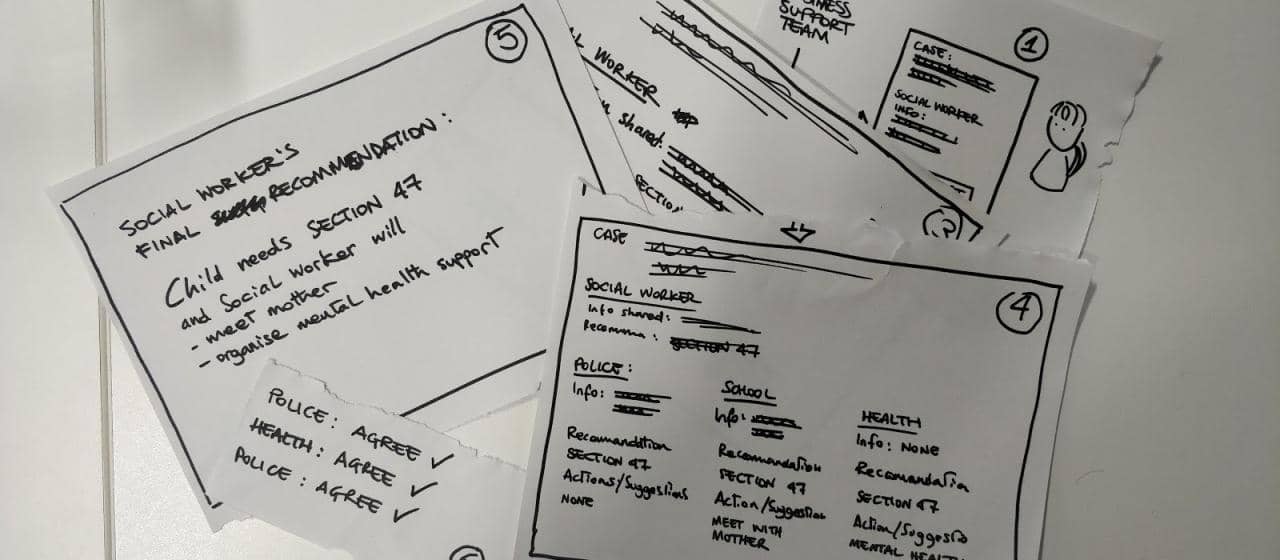 5
SOCIAL WORKER'S
FINAL RECOMMENDATION:
Child needs SECTION 47
and Social Worker will
- meet mother
- organise mental health support
POLICE: AGREE ✓
HEALTH: AGREE ✓
POLICE: AGREE ✓
WORKER
shared:
SUPPORT
TEAM
1
CASE:
SOCIAL WORKER
INFO:
4
CASE
SOCIAL WORKER
Info shared:
Recomma:
SECTION 47
POLICE:
Info:
Recommandation
SECTION 47
Actions/Suggestions
NONE
SCHOOL
Info:
Recommandation
SECTION 47
Action/Suggestion
MEET WITH
MOTHER
HEALTH
Info: NONE
Recommandation
SECTION 47
Action/Suggestio
MENTAL